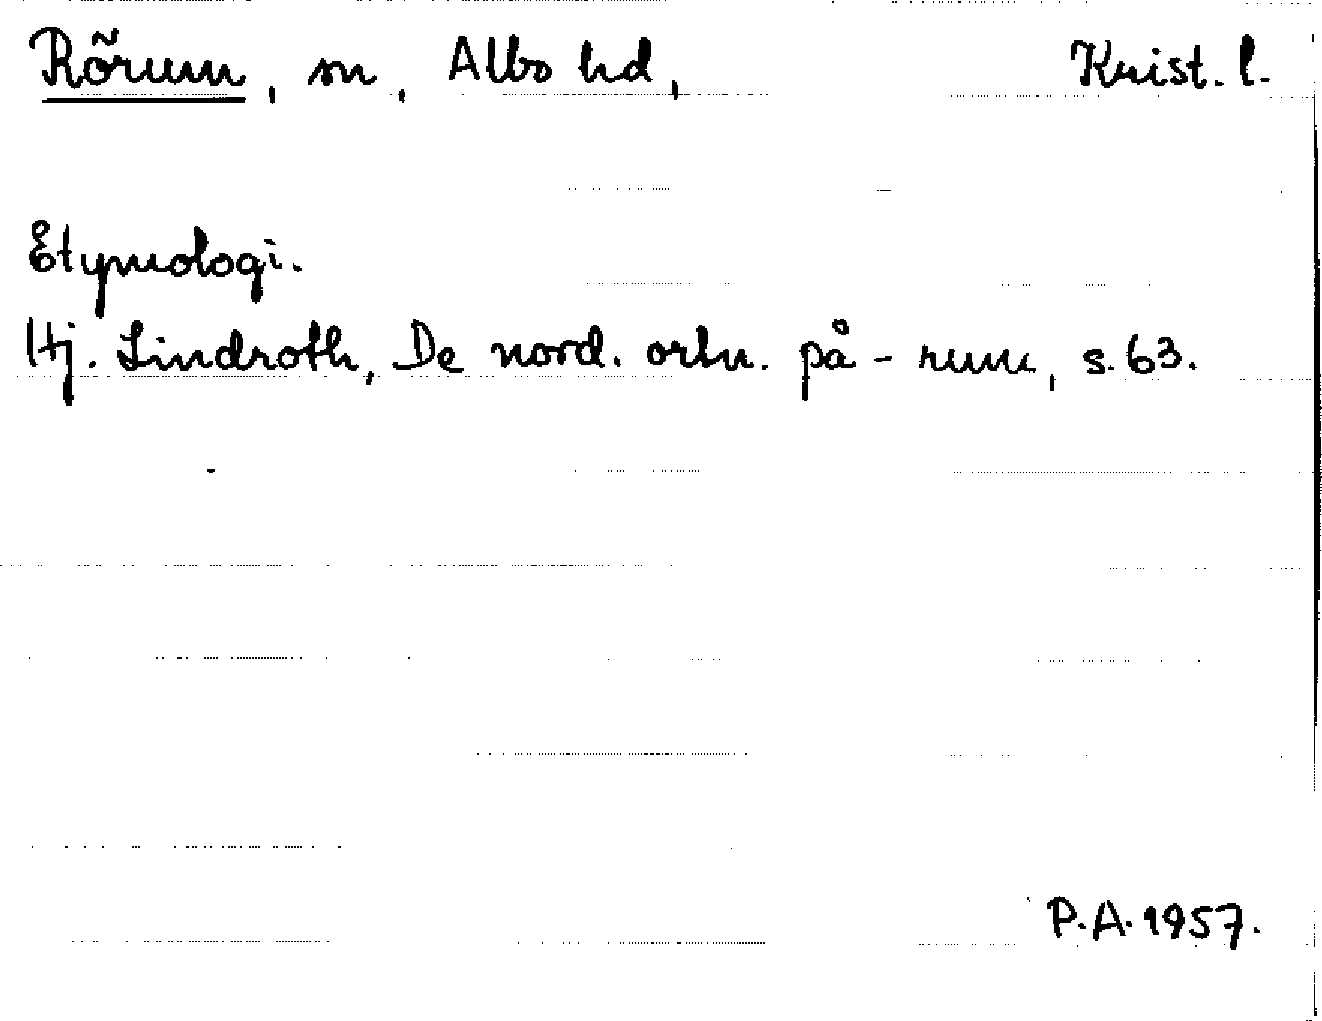 Rõrum, sn, Albo hd, Krist. l.
Etymologi.
Hj. Lindroth, De nord. ortn. på -rum, s. 63.
P.A. 1957.